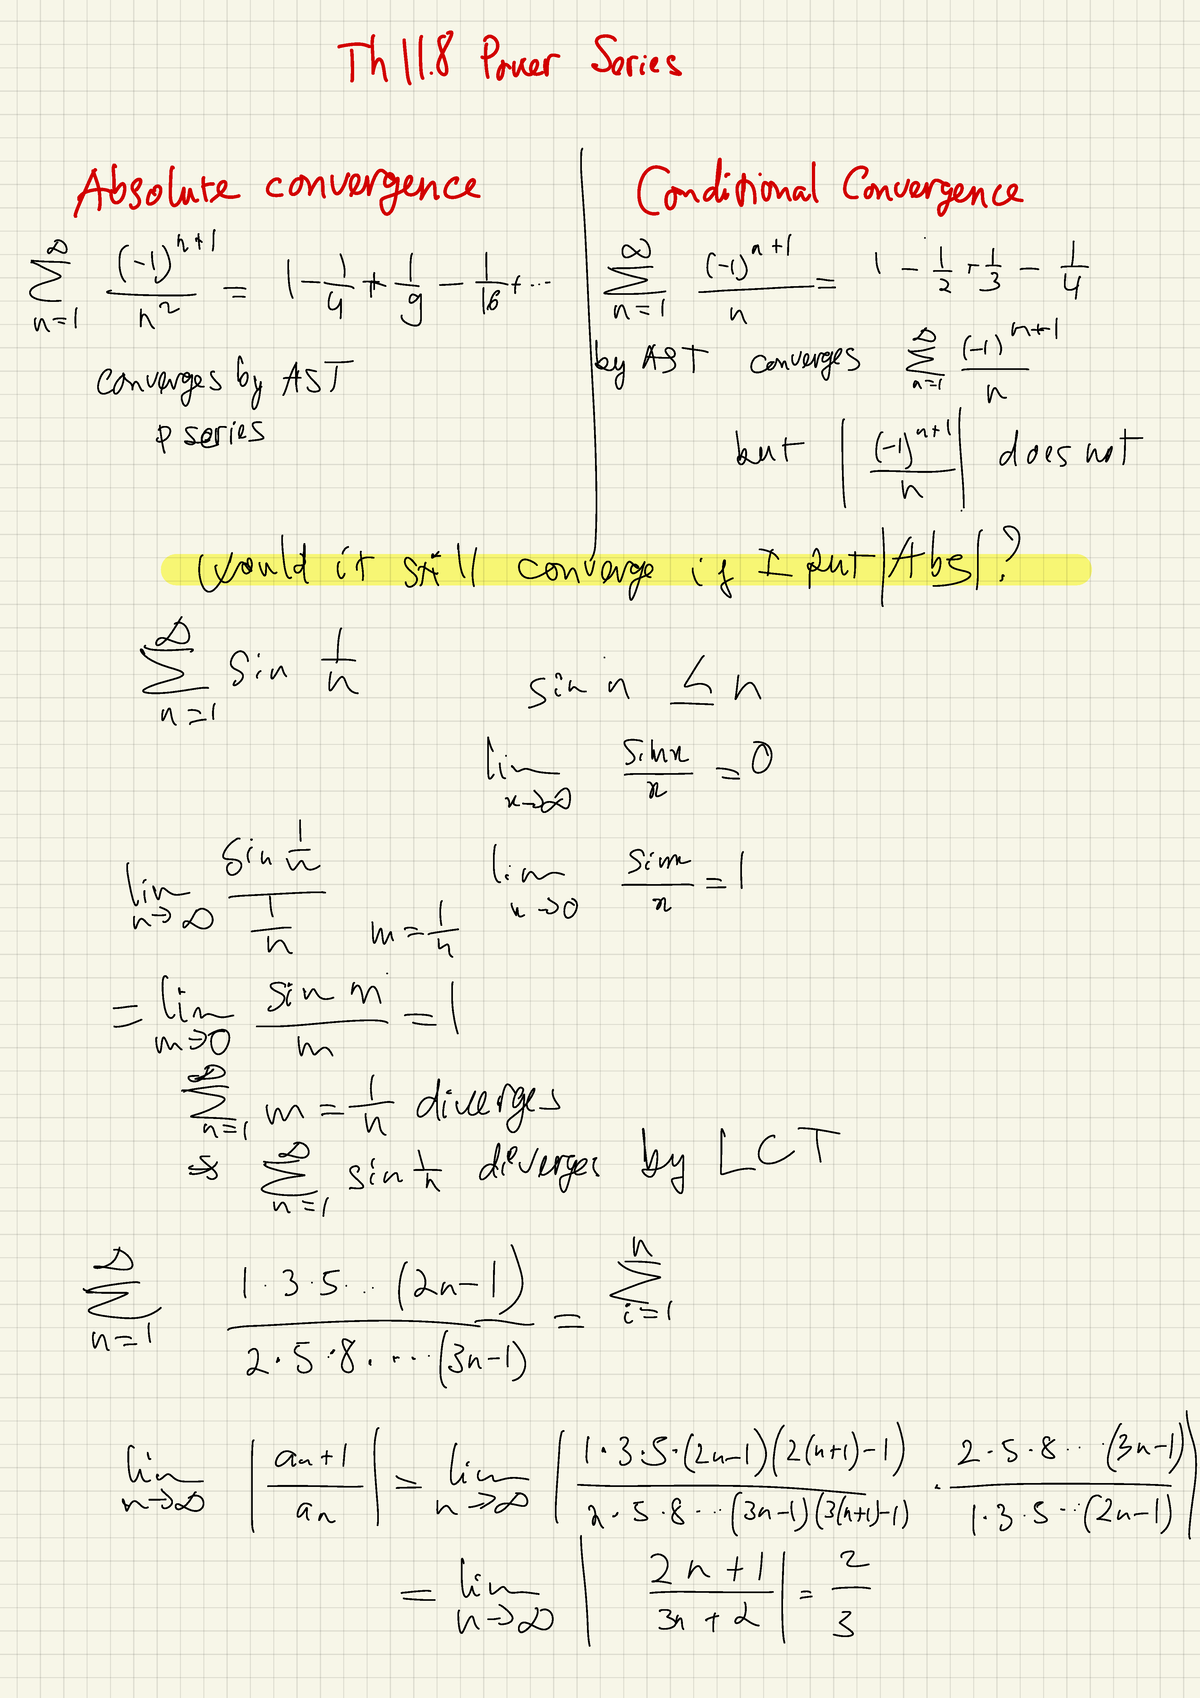 Th 11.8 Power Series
Absolute convergence
∞∑n=1 (-1)^{n+1}/n² = 1 - 1/4 + 1/9 - 1/16 + ...
converges by AST
p series
Conditional Convergence
∞∑n=1 (-1)^{n+1}/n = 1 - 1/2 + 1/3 - 1/4
by AST converges ∞∑n=1 (-1)^{n+1}/n
but |(-1)^{n+1}/n| does not
Would it still converge if I put |Abs|?
∞∑n=1 sin 1/n
sin n ≤ n
lim x→∞ sinx/x = 0
lim x→0 sinx/x = 1
lim n→∞ (sin 1/n)/(1/n) m = 1/n
= lim m→0 sin m/m = 1
∞∑n=1 m = 1/n diverges
∞∑n=1 sin 1/n diverges by LCT
∞∑n=1 1·3·5···(2n-1)/2·5·8····(3n-1) = n∑i=1
lim n→∞ |an+1/an| = lim n→∞ |1·3·5·(2n-1)(2(n+1)-1)/2·5·8···(3n-1)(3(n+1)-1) · 2·5·8···(3n-1)/1·3·5···(2n-1)|
= lim n→∞ |2n+1/3n+2| = 2/3